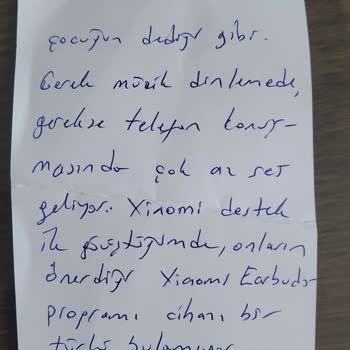 çocuğun dediği gibi.
Gerek müzik dinlemede,
gerekse telefon konuş-
masında çok az ses
geliyor. Xiaomi destek
ile görüştüğümde, onların
önerdiği Xiaomi Earbuds
programı cihazı bir
türlü bulamıyor